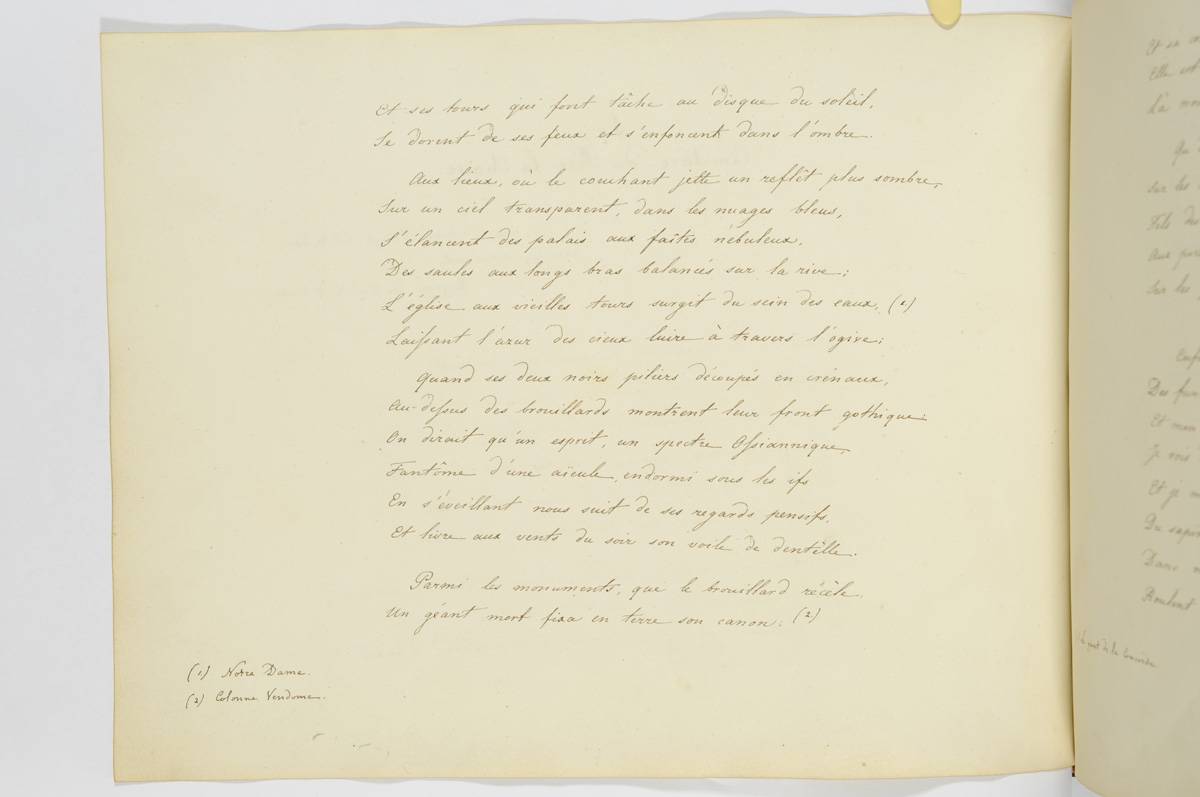 Et ses tours qui font tâche au disque du soleil,
Se dorent de ses feux et s'enfoncent dans l'ombre.
Aux lieux, où le couchant jette un reflêt plus sombre,
Sur un ciel transparent, dans les nuages bleus,
S'élancent des palais aux faîtes nébuleux,
Des saules aux longs bras balancés sur la rive;
L'église aux vieilles tours surgit du sein des eaux, (1)
Laissant l'azur des cieux luire à travers l'ogive;
Quand ses deux noirs piliers découpés en crénaux,
Au-dessus des brouillards montrent leur front gothique:
On dirait qu'un esprit, un spectre Ossiannique,
Fantôme d'une aïeule, endormi sous les ifs
En s'éveillant nous suit de ses regards pensifs,
Et livre aux vents du soir son voile de dentêlle.
Parmi les monuments, que le brouillard récèle,
Un géant mort fixa en terre son canon; (2)
(1) Notre Dame.
(2) Colonne Vendome.
Elle est
Sur les
Fils de
Sur les
Et mon
Je vois
Et je
Dans
Roulent